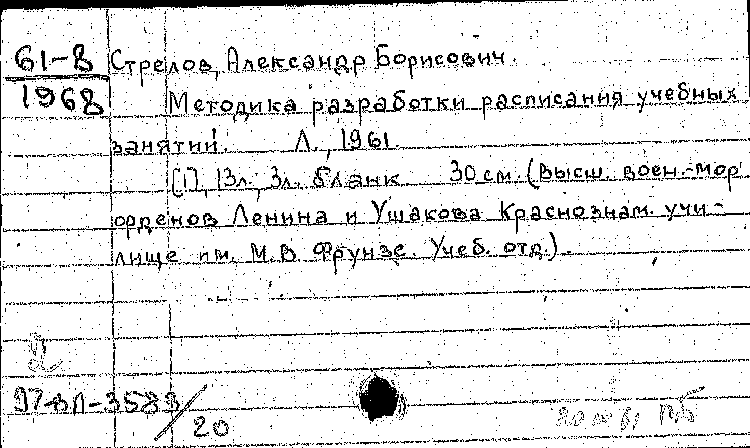 61-8
1968
Стрелов, Александр Борисович.
Методика разработки расписания учебных
занятий. Л., 1961.
[1], 13л., 3л. бланк. 30 см. (Высш. воен.-мор
орденов Ленина и Ушакова Краснознам. учи-
лище им. М.В. Фрунзе. Учеб. отд.).
2
97-ВЛ-3583/20